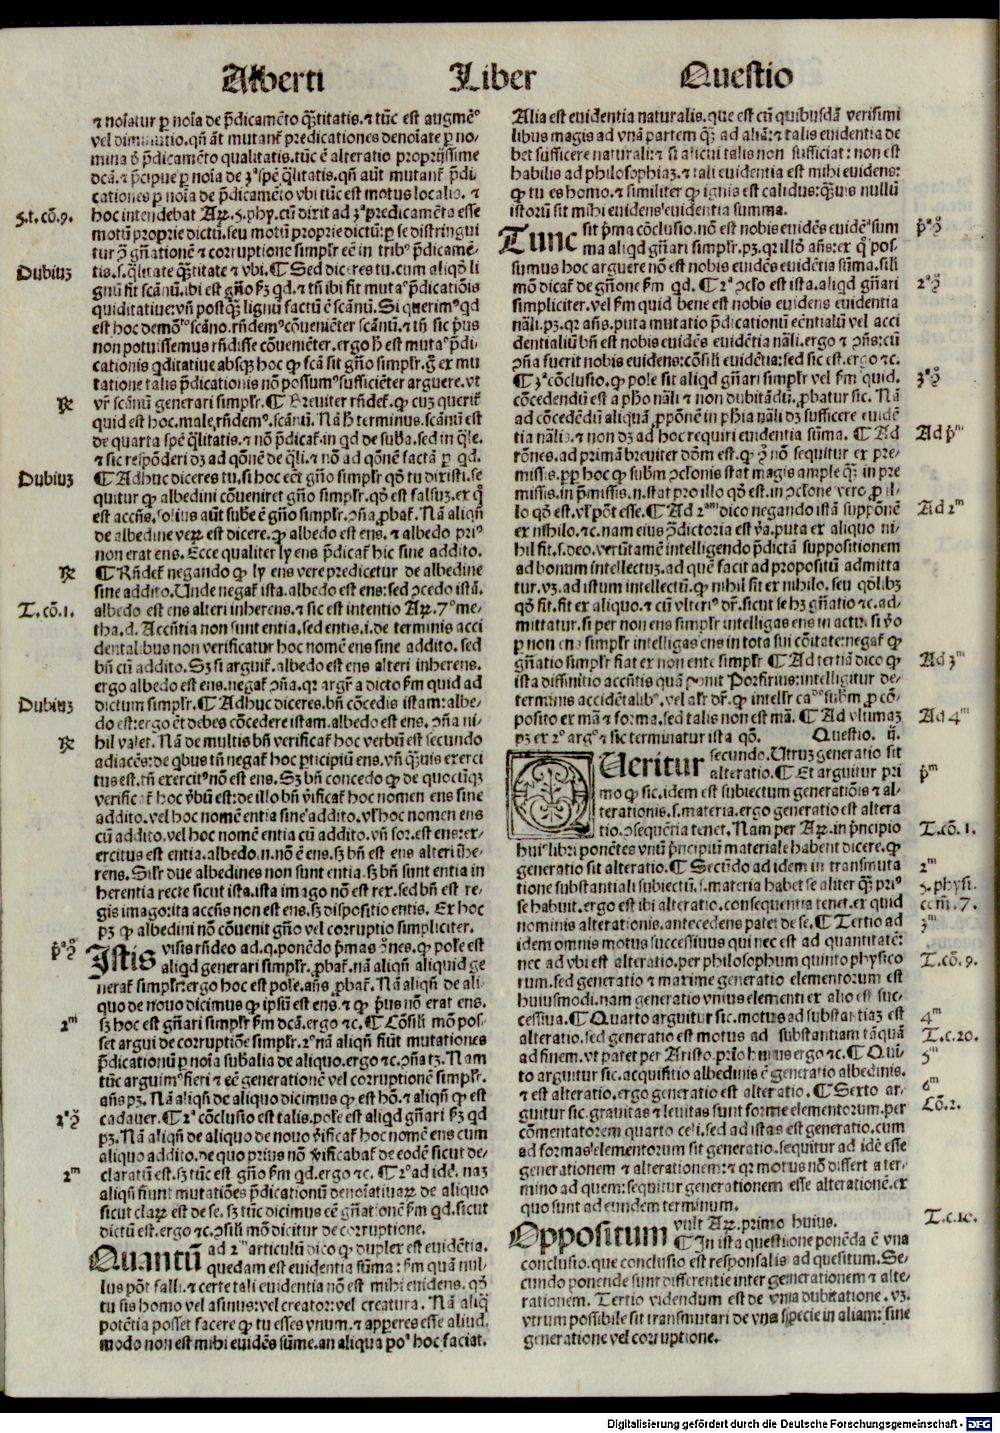 Alberti Liber Questio
⁊ noīatur ꝑ noīa de p̄dicamēto q̄ꝫtitatis. ⁊ tūc est augmēꝰ
vel diminutio. qn̄ āt mutant̄ predicationes denoīate ꝑ no-
mina ð p̄dicamēto qualitatis. tūc ē alteratio proprijssime
dcā. ⁊ p̄cipue ꝑ noīa de ȝᵃ spē q̄litatis. qn̄ aūt mutant̄ p̄di
cationes ꝑ noīa de p̄dicamēto vbi tūc est motus localis. ⁊
5.t.cō.9.
hoc intendebat Aꝝ. 5. phy. cū dixit ad ȝᵃ predicamēta esse
motū proprie dictū. seu motū proprie dictū: ꝑ se distingui
tur ꝯ̄ gn̄ationē ⁊ corruptione simplr̄ eē in tribꝰ p̄dicamē-
Dubiuꝫ
tis. s. q̄litate q̄ꝫtitate ⁊ vbi. ¶ Sed diceres tu. cum aliqn̄ li
gnū fit scānū. ibi est gn̄o fꝫ qd. ⁊ tn̄ ibi fit mutaᵒ p̄dicatiōis
quiditatiue: vn̄ postq̄ꝫ lignū factū ē scānū. Si querimꝰ qd
est hoc demōᵒ scāno. rn̄demꝰ cōueniēter scānū. ⁊ tn̄ sic priꝰ
non potuissemus rn̄disse cōueniēter. ergo h̄ est mutaᵒ p̄di-
cationis qditatiue absqꝫ hoc ꝙ scā sit gn̄o simplr̄. ḡ ex mu
tatione talis p̄dicationis nō possumꝰ sufficiēter arguere. vt
℞
vr̄ scānū generari simplr̄. ¶ Breuiter rn̄det̄. ꝙ cuꝫ querit̄
quid est hoc. male rn̄demꝰ. scānū. Nā h̄ terminus. scānū est
de quarta spē q̄litatis. ⁊ nō p̄dicat̄. in qd de suba. sed in q̄le.
⁊ sic respōderi dꝫ ad qōnē de q̄li. ⁊ nō ad qōnē factā ꝑ qd.
Dubiuꝫ
¶ Adhuc diceres tu. si hoc eēt gn̄o simplr̄ qō tu dixisti. se
quitur ꝙ albedini cōueniret gn̄o simplr̄. qō est falsuꝫ. ex q̄
est accn̄s. solius aūt sube ē gn̄o simplr̄. ꝯn̄a ꝓbat̄. Nā aliqn̄
de albedine veꝝ est dicere. ꝙ albedo est ens. ⁊ albedo priꝰ
non erat ens. Ecce qualiter ly ens p̄dicat̄ hic sine addito.
℞
¶ Rn̄det̄ negando ꝙ ly ens vere predicetur de albedine
sine addito. Unde negat̄ ista. albedo est ens: sed ꝯcedo istā.
T.cō.1.
albedo est ens alteri inherens. ⁊ sic est intentio Aꝝ. 7ᵒ me-
tha. d. Accn̄tia non sunt entia. sed entis. i. de terminis acci
dentalibus non verificatur hoc nomē ens sine addito. sed
bn̄ cū addito. Sꝫ si arguit̄. albedo est ens alteri inherens.
ergo albedo est ens. negat̄ ꝯn̄a. qꝛ argr̄ a dicto fm quid ad
Dubiuꝫ
dictum simplr̄. ¶ Adhuc diceres. bn̄ cōcedis istam: albe-
do est: ergo ēt debes cōcedere istam. albedo est ens. ꝯn̄a ni-
℞
hil valet. Nā de multis bn̄ verificat̄ hoc verbū est secundo
adiacēs: de qbus tn̄ negat̄ hoc ꝑticipiū ens. vn̄ q̄ꝫuis exerci
tus est. tn̄ exercitꝰ nō est ens. Sꝫ bn̄ concedo ꝙ de quocūqꝫ
verificat̄ hoc v̄bū est: de illo bn̄ v̄ificat̄ hoc nomen ens sine
addito. vel hoc nomē entia sine addito. vl̄ hoc nomen ens
cū addito. vel hoc nomē entia cū addito. vn̄ sor. est ens: ex-
ercitus est entia. albedo. n. nō ē ens. sꝫ bn̄ est ens alteri īhe-
rens. Silr̄ due albedines non sunt entia. sꝫ bn̄ sunt entia in
herentia recte sicut ista. ista imago nō est rex. sed bn̄ est re-
gis imago: ita accn̄s non est ens. sꝫ dispositio entis. Ex hoc
pꝫ ꝙ albedini nō cōuenit gn̄o vel corruptio simpliciter.
p̄ᵃ ꝯ̄
Istis visis rn̄deo ad. q. ponēdo p̄mas ꝯ̄nes. ꝙ pole est
aliqd generari simplr̄. ꝓbat̄. nā aliqn̄ aliquid ge
nerat̄ simplr̄: ergo hoc est pole. an̄s ꝓbat̄. Nā aliqn̄ de ali-
quo de nouo dicimus ꝙ ipsū est ens. ⁊ ꝙ p̄us nō erat ens.
2ᵐ
sꝫ hoc est gn̄ari simplr̄ fm dcā. ergo ⁊c. ¶ Cōsili mō pos-
set argui de corruptiōe simplr̄. 2ᵒ nā aliqn̄ fiūt mutationes
p̄dicationū ꝑ noīa subalia de aliquo. ergo ⁊c. ꝯn̄a tꝫ. Nam
tūc arguimꝰ fieri ⁊ eē generationē vel corruptionē simplr̄.
an̄s pꝫ. Nā aliqn̄ de aliquo dicimus ꝙ est hō. ⁊ aliqn̄ ꝙ est
2ᵃ ꝯ̄
cadauer. ¶ 2ᵃ cōclusio est talis. pole est aliqd gn̄ari fꝫ qd
pꝫ. Nā aliqn̄ de aliquo de nouo v̄ificat̄ hoc nomē ens cum
aliquo addito. de quo prius nō v̄ificabat̄ de eodē sicut de-
2ᵐ
claratū est. sꝫ tūc est gn̄o fm qd. ergo ⁊c. ¶ 2ᵒ ad idē. naꝫ
aliqn̄ fiunt mutatiōes p̄dicationū denoīatiuaꝝ de aliquo
sicut claꝝ est de se. sꝫ tūc dicimus eē gn̄ationē fm qd. sicut
dictū est. ergo ⁊c. ꝯsili mō dicitur de corruptione.
Quantū ad 2ᵐ articulū dico ꝙ duplex est euidētia.
quedam est euidentia sūma: fm quā nul-
lus pōt falli. ⁊ certe tali euidentia nō est mihi euidens. qō
tu sis homo vel asinus: vel creator: vel creatura. Nā aliq̄
potētia posset facere ꝙ tu esses vnum. ⁊ apperes esse aliud.
modo non est mihi euidēs sūme. an aliqua poᵃ hoc faciat.
Alia est euidentia naturalis. que est cū quibusdā verisimi
libus magis ad vnā partem q̄ꝫ ad aliā: ⁊ talis euidentia de
bet sufficere naturali: ⁊ si alicui talis non sufficiat: non est
habilis ad philosophiaꝫ. ⁊ tali euidentia est mihi euidens:
ꝙ tu es homo. ⁊ similiter ꝙ ignis est calidus: q̄ꝫuis nullū
istorū sit mihi euidens euidentia summa.
p̄ᵃ ꝯ̄
Tunc sit p̄ma cōclusio. nō est nobis euidēs euidēᵃ sum
ma aliqd gn̄ari simplr̄. pꝫ. qꝛ illō an̄s: ex q̄ pos-
sumus hoc arguere nō est nobis euidēs euidētia sūma. sili
2ᵃ ꝯ̄
mō dicat̄ de gn̄one fm qd. ¶ 2ᵃ ꝯclo est ista. aliqd gn̄ari
simpliciter. vel fm quid bene est nobis euidens euidentia
nāli. pꝫ. qꝛ an̄s. puta mutatio p̄dicationū eēntialiū vel acci
dentialiū bn̄ est nobis euidēs euidētia nāli. ergo ⁊ ꝯn̄s: cū
ꝯn̄a fuerit nobis euidens: cōsili euidētia: sed sic est. ergo ⁊c.
ȝᵃ ꝯ̄
¶ ȝᵃ cōclusio. ꝙ pole sit aliqd gn̄ari simplr̄ vel fm quid.
cōcedendū est a pho nāli ⁊ non dubitādū. ꝓbatur sic. Nā
ad cōcedēdū aliquā ꝓpōnē in phia nāli dꝫ sufficere euidē
Ad p̄ᵐ
tia nālis. ⁊ non dꝫ ad hoc requiri euidentia sūma. ¶ Ad
rōnes. ad primā breuiter dōm est. ꝙ ꝯ̄ nō sequitur ex pre-
missis. ꝓp̄ hoc ꝙ subm ꝯclonis stat magis ample q̄ꝫ in pre
missis. in p̄missis. n. stat pro illo qō est. in ꝯclone vero ꝓ il-
Ad 2ᵐ
lo qō est. vl̄ pōt esse. ¶ Ad 2ᵃᵐ dico negando istā supponē
ex nihilo. ⁊c. nam eius ꝯdictoria est v̄a. puta ex aliquo ni-
hil fit. s. deo. verūtamē intelligendo p̄dictā suppositionem
ad bonum intellectuꝫ. ad quē facit ad propositū admitta
tur. vꝫ. ad istum intellectū. ꝙ nihil fit ex nihilo. seu qōlibꝫ
qō fit. fit ex aliquo. ⁊ cū vlteriꝰ dr̄. sicut se hꝫ gn̄atio ⁊c. ad-
mittatur. si per non ens simplr̄ intelligas ens in actu. si v̄o
ꝑ non ens simplr̄ intelligas ens in tota sui cōitate: negat̄ ꝙ
Ad ȝᵐ
gn̄atio simplr̄ fiat ex non ente simplr̄ ¶ Ad tertiā dico ꝙ
ista diffinitio accn̄tis quā ponit Porfirius: intelligitur de-
terminis accidētalibꝰ. vel alr̄ dr̄. ꝙ intelligr̄ caᵒ subm ꝓ cō-
Ad 4ᵐ
posito ex mā ⁊ forma. sed talis non est mā. ¶ Ad vltimaꝫ
pꝫ ex 2ᵒ argᵒ ⁊ sic terminatur ista qō. Questio. ij.
p̄ᵐ
Queritur secundo. Utruꝫ generatio sit
alteratio. ¶ Et arguitur pri
mo ꝙ sic. idem est subiectum generatiōis ⁊ al-
terationis. s. materia. ergo generatio est altera
T.cō.1.
tio. ꝯsequētia tenet. Nam per Aꝝ. in p̄ncipio
huiꝰ libri ponētes vnū p̄ncipiū materiale habent dicere. ꝙ
2ᵐ
generatio sit alteratio. ¶ Secūdo ad idem in transmuta
5.physi.
tione substantiali subiectū. s. materia habet se aliter q̄ꝫ priꝰ
cōm.7.
se habuit. ergo est ibi alteratio. consequentia tenet. ex quid
ȝᵐ
nominis alterationis. antecedens patet de se. ¶ Tertio ad
idem omnis motus successiuus qui nec est ad quantitatē:
T.cō.9.
nec ad vbi est alteratio. per philosophum quinto physico
rum. sed generatio ⁊ maxime generatio elementorum est
huiusmodi. nam generatio vnius elementi ex alio est suc-
4ᵐ
cessiua. ¶ Quarto arguitur sic. motus ad substantiaꝫ est
T.c.20.
alteratio. sed generatio est motus ad substantiam tāquā
5ᵐ
ad finem. vt patet per Aristo. prīo huius ergo ⁊c. ¶ Qui-
to arguitur sic. acquisitio albedinis ē generatio albedinis.
6ᵐ
⁊ est alteratio. ergo generatio est alteratio. ¶ Sexto ar-
Cō.2.
guitur sic. grauitas ⁊ leuitas sunt forme elementorum. per
cōmentatorem quarto celi. sed ad istas est generatio. cum
ad formas elementorum sit generatio. sequitur ad idē esse
generationem ⁊ alterationem: ⁊ qꝛ motus nō differt a ter-
mino ad quem: sequitur generationem esse alterationē. ex
quo sunt ad eundem terminum.
T.c.10.
Oppositum vult Aꝝ. primo huius.
¶ In ista questione ponēda ē vna
conclusio. que conclusio est responsalis ad quesitum. Se-
cundo ponende sunt differentie inter generationem ⁊ alte-
rationem. Tertio videndum est de vnia dubitatione. vꝫ.
vtrum possibile sit transmutari de vna specie in aliam: sine
generatione vel corruptione.
Digitalisierung gefördert durch die Deutsche Forschungsgemeinschaft - DFG